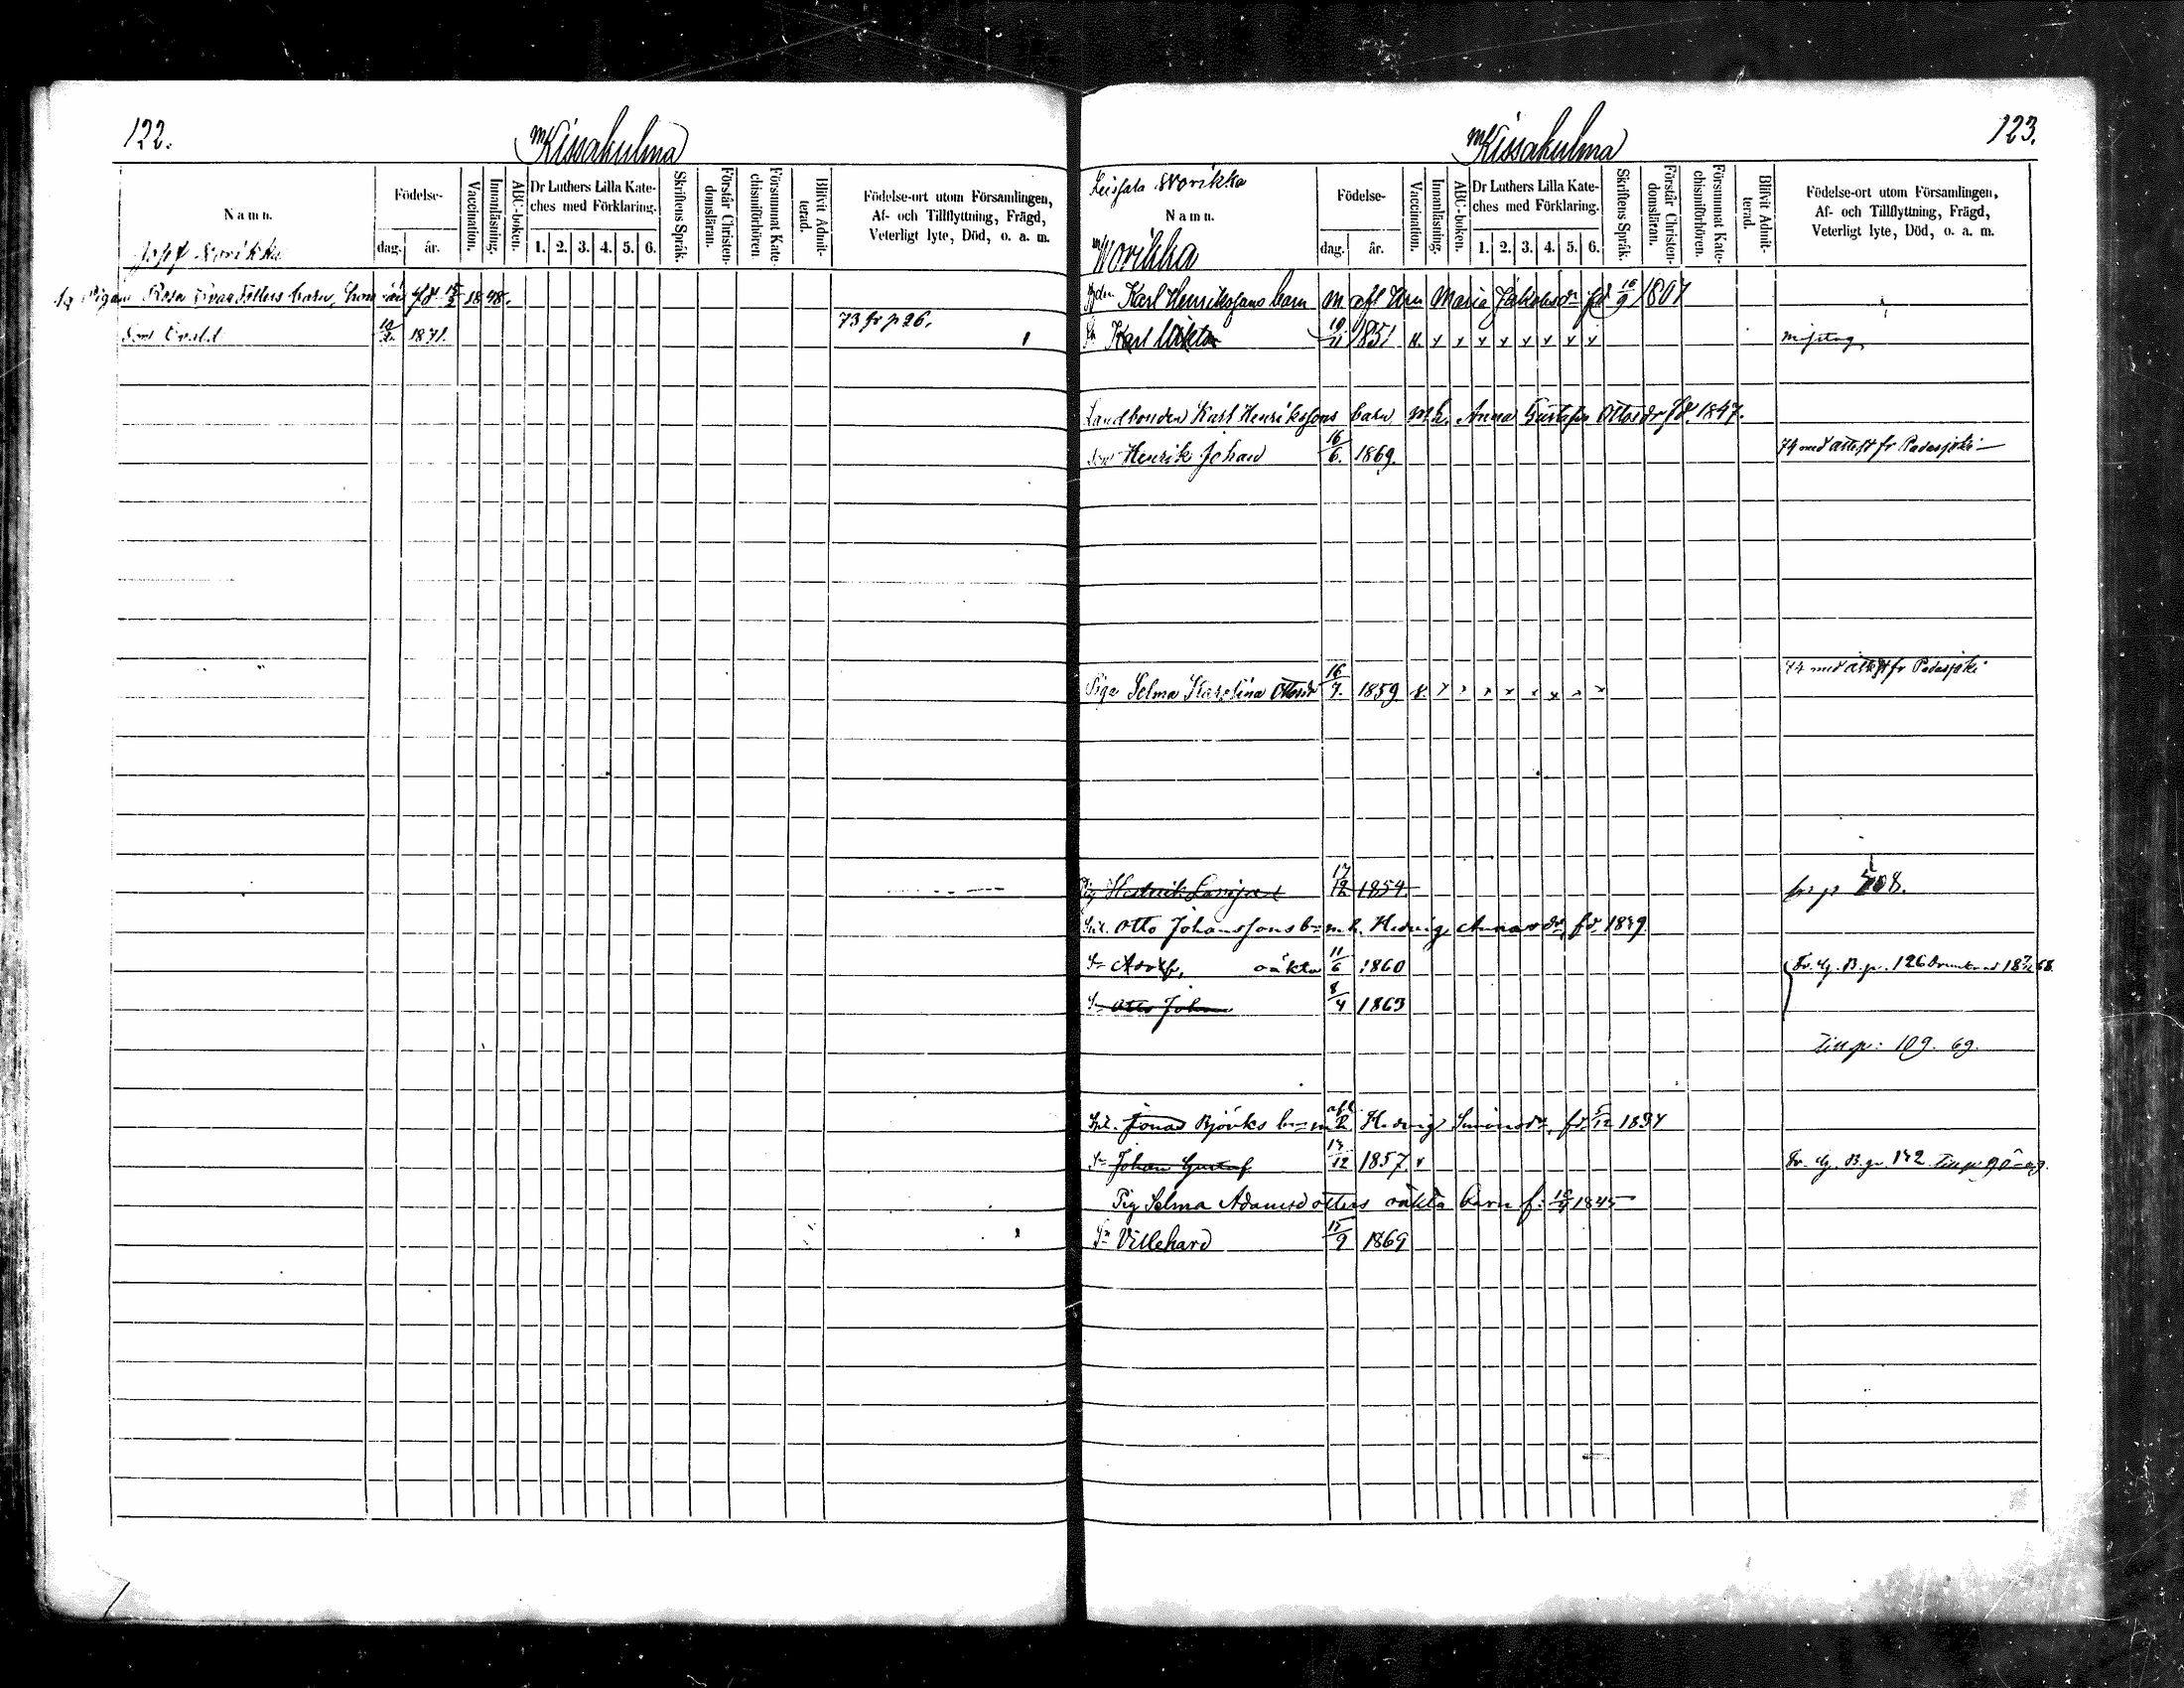 122.
Kissakulma
Namn.
Födelse-
dag. år.
Vaccination.
Innanläsning.
ABC-boken.
Dr Luthers Lilla Kate-
ches med Förklaring.
1. 2. 3. 4. 5. 6.
Skriftens Språk.
Förstår Christen-
domsläran.
Försummat Kate-
chismiförhören.
Blifvit Admit-
terad.
Födelse-ort utom Församlingen,
Af- och Tillflyttning, Frägd,
Veterligt lyte, Död, o. a. m.
Rosa barn, 1848.
1871. 73 fr p 26.
123.
Kissakulma
Worikka
Namn.
Worikka
Födelse-
dag. år.
Vaccination.
Innanläsning.
ABC-boken.
Dr Luthers Lilla Kate-
ches med Förklaring.
1. 2. 3. 4. 5. 6.
Skriftens Språk.
Förstår Christen-
domsläran.
Försummat Kate-
chismiförhören.
Blifvit Admit-
terad.
Födelse-ort utom Församlingen,
Af- och Tillflyttning, Frägd,
Veterligt lyte, Död, o. a. m.
Karl Henrikssons barn m afl Hru Maria Jakobsdr fd 1807
Karl 10/11 1851 x x x x x x x x
Landbonden Karl Henrikssons barn m.h. Anna Gustafva Ottosdr fd. 1847.
Son Henrik Johan 16/6. 1869. 74 med attest fr Padasjoki
Piga Selma Karolina Ottosdr 16/7. 1859. x x x x x x x x x 74 med attest fr Padasjoki
17/12 1854. fr p 708.
Otto Johanssons bn m.h. Hedvig Annasdr, fd. 1839
Sn Adolf, oäkta 11/6 1860
Sn Otto Johan 8/4 1863
Till p: 109. 69.
Jonas Björks bn m afl. h. Hedvig Simonsdr, fd. 5/12 1834
Sn Johan Gustaf 17/12 1857 x
Pig Selma Adamsdotters oäkta barn f: 1845
Sn Villehard 15/9 1869